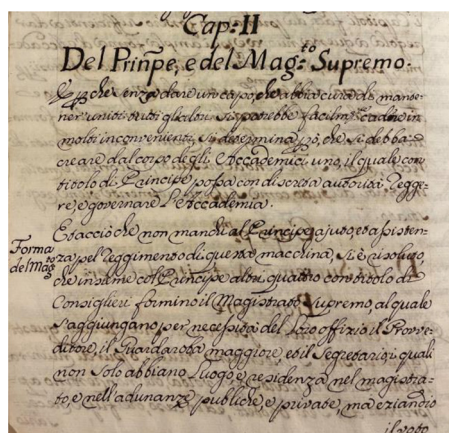 Cap: II
Del Prinp̃e, e del Mag:to Supremo.
che senza dare un capo, che abbia cura di mante=
ner uniti tutti gli altri si potrebbe facilm:te cadere in
molti inconvenienti, si determina p̃ò, che si debba
creare dal corpo degli Accademici uno, il quale con
titolo di Principe possa con discreta autorità regge=
re, e governare l'Accademia.
Et acciò che non manchi al Principe ajuto, et assisten=
za pel reggimento di questa macchina, si è risoluto,
Forma
del Mag:to
che insieme col Principe altri quattro con titolo di
Consiglieri formino il Magistrato Supremo, al quale
s'aggiungano per necessità del loro offizio il Prove=
ditore, il Guardaroba maggiore, et il Segretario, i quali
non solo abbiano luogo, e residenza nel magistra=
to, e nell'adunanze publiche, e private, ma eziandio
il voto